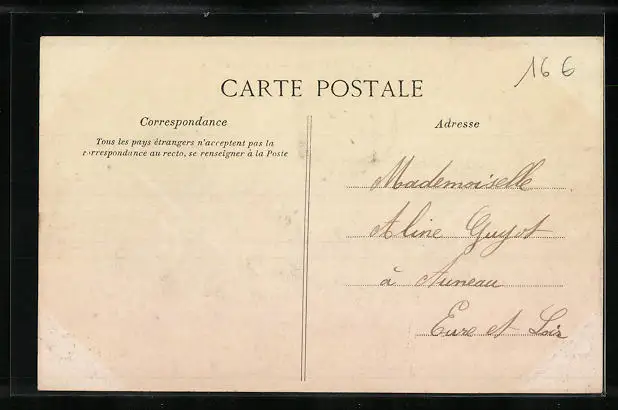 16 €
CARTE POSTALE
Correspondance
Tous les pays étrangers n'acceptent pas la
correspondance au recto, se renseigner à la Poste
Adresse
Mademoiselle
Aline Guyot
à Auneau
Eure et Loir